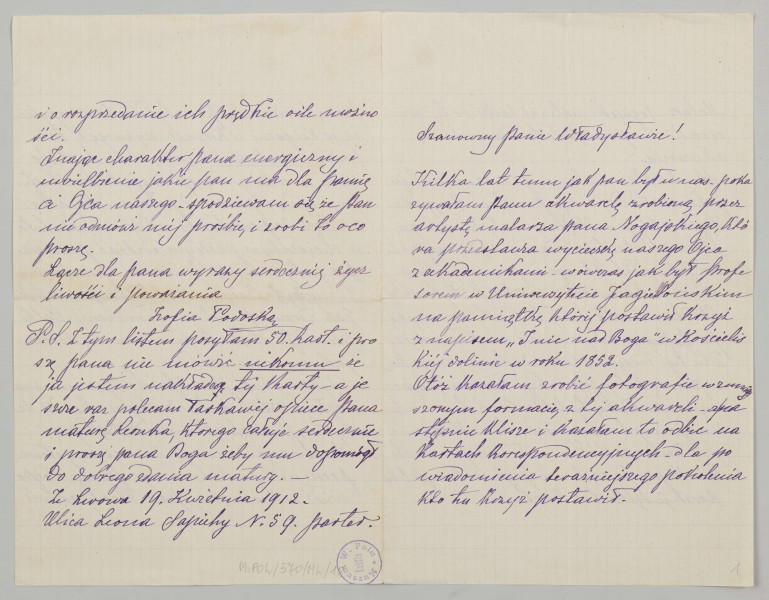 Szanowny Panie Władysławie!
Kilka lat temu jak pan był u nas - poka
zywałam Panu akwarelę zrobioną przez
artystę malarza pana Nogajskiego, Któ
ra przedstawia wycieczkę naszego Ojca
z akademikami - wówczas jak był Profe
sorem w Uniwersytecie Jagiellońskiem
na pamiątkę której postawił Krzyż
z napisem „I nic nad Boga" w Kościelis
kiej dolinie w roku 1852.
Otóż kazałam zrobić fotografie w zmniej
szonym formacie z tej akwareli -
i kazałam to odbić na
Kartach Korrespondencyjnych - dla po
wiadomienia teraźniejszego pokolenia
Kto tu Krzyż postawił -
i o rozprzedanie ich prędkie o ile możno
ści.
Znając charakter pana energiczny i
uwielbienie jakie pan ma dla Pamię
ci Ojca naszego - spodziewam się że Pan
nie odmówi mej prośbie, i zrobi to o co
proszę.
Łączę dla pana wyrazy serdecznej życz
liwości i poważania
Zofia Podoska
P.S. Z tym listem posyłam 50. kart. i pro
szę pana nie mówić nikomu że
ja jestem nakładcą tej Karty - a je
szcze raz polecam łaskawej opiece Pana
maturę Leonka, którego całuję serdecznie
i proszę pana Boga żeby mu dopomógł
do dobrego zdania matury. -
Ze Lwowa 19. Kwietnia 1912.
Ulica Leona Sapiehy No 59. parter.
1